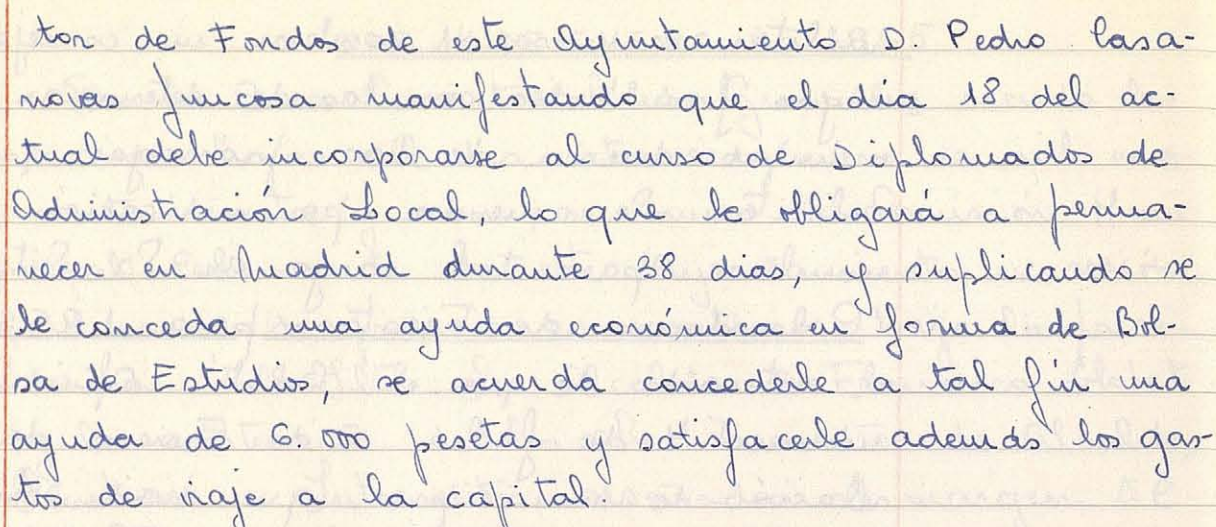 tor de Fondos de este Ayuntamiento D. Pedro Casa-
novas Juncosa manifestando que el dia 18 del ac-
tual debe incorporarse al curso de Diplomados de
Administración Local, lo que le obligará a perma-
necer en Madrid durante 38 dias, y suplicando se
le conceda una ayuda económica en forma de Bol-
sa de Estudios, se acuerda concederle a tal fin una
ayuda de 6.000 pesetas y satisfacerle además los gas-
tos de viaje a la capital.